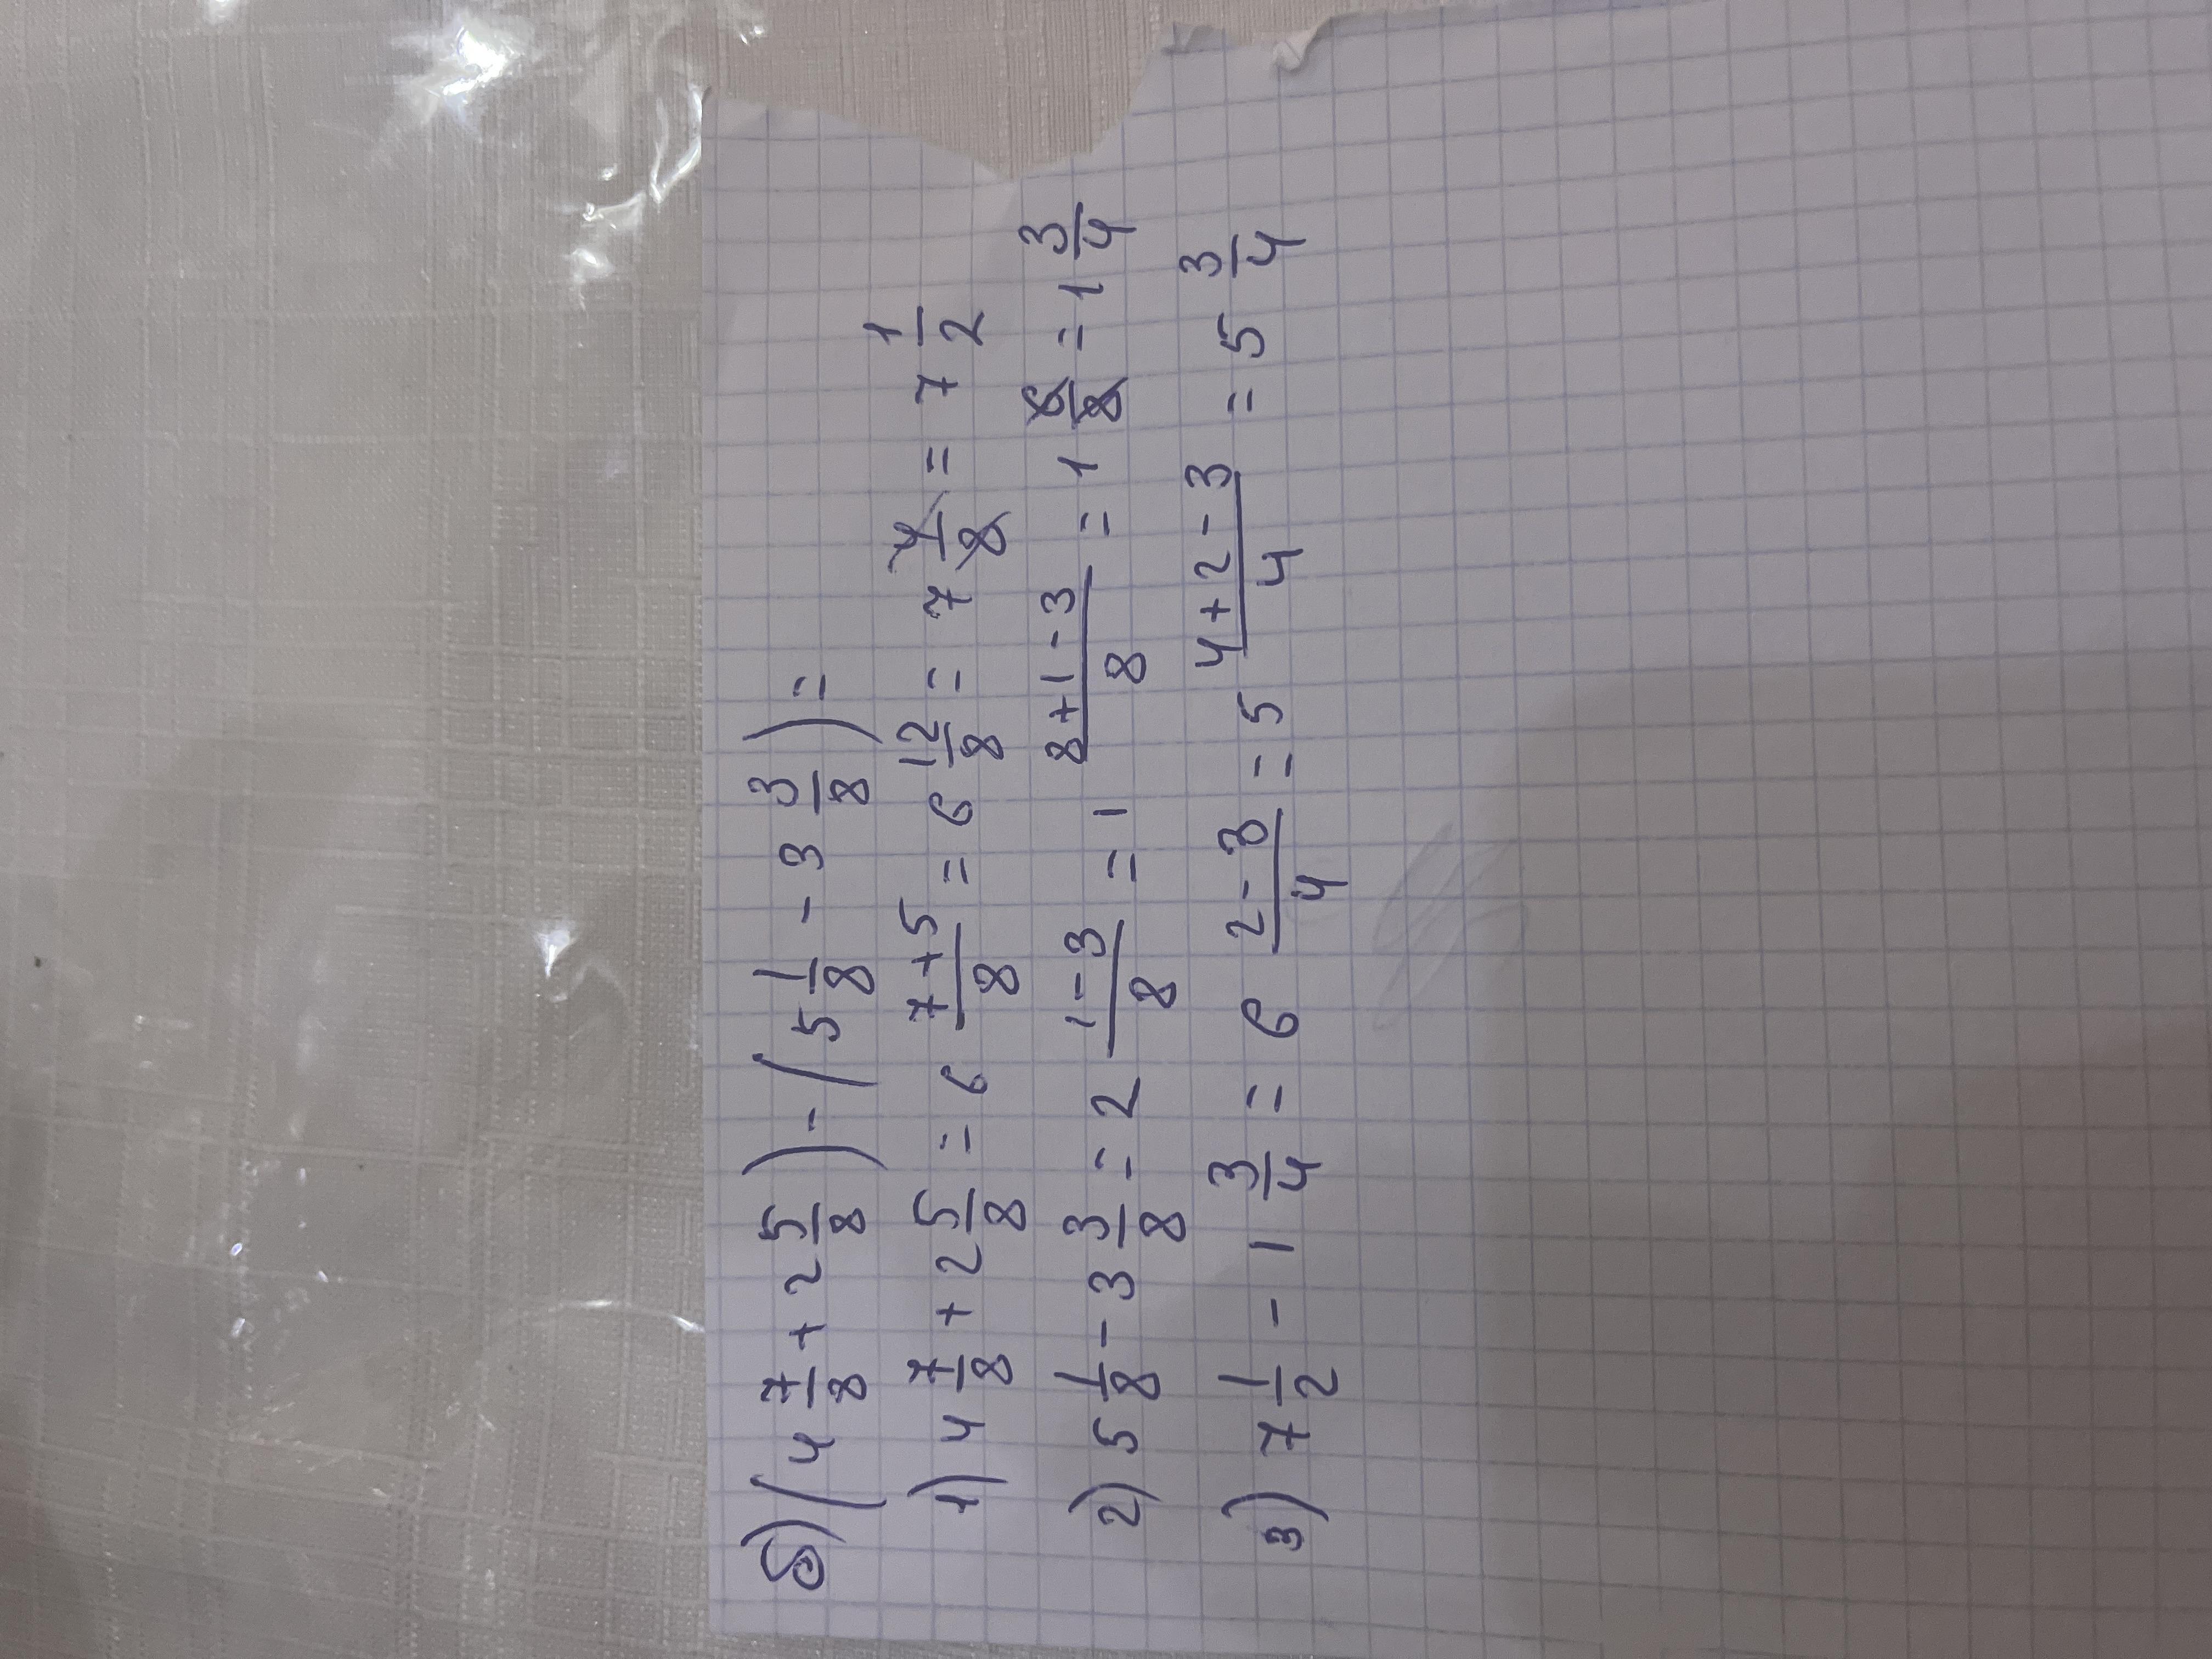 б) (4 7/8 + 2 5/8) - (5 1/8 - 3 3/8) =
1) 4 7/8 + 2 5/8 = 6 7+5/8 = 6 12/8 = 7 4/8 = 7 1/2
2) 5 1/8 - 3 3/8 = 2 1-3/8 = 1 8+1-3/8 = 1 6/8 = 1 3/4
3) 7 1/2 - 1 3/4 = 6 2-3/4 = 5 4+2-3/4 = 5 3/4